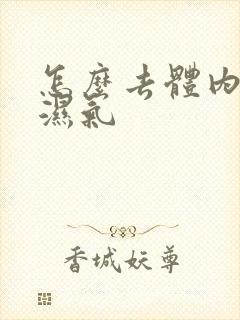 怎麼去體內
濕氣
香城妖尊